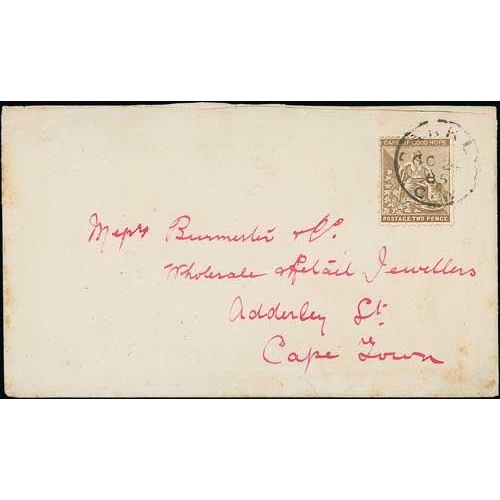 CAPE OF GOOD HOPE
POSTAGE. TWO PENCE
85
Messrs Burmester & Co.
Wholesale & Retail Jewellers
Adderley St.
Cape Town